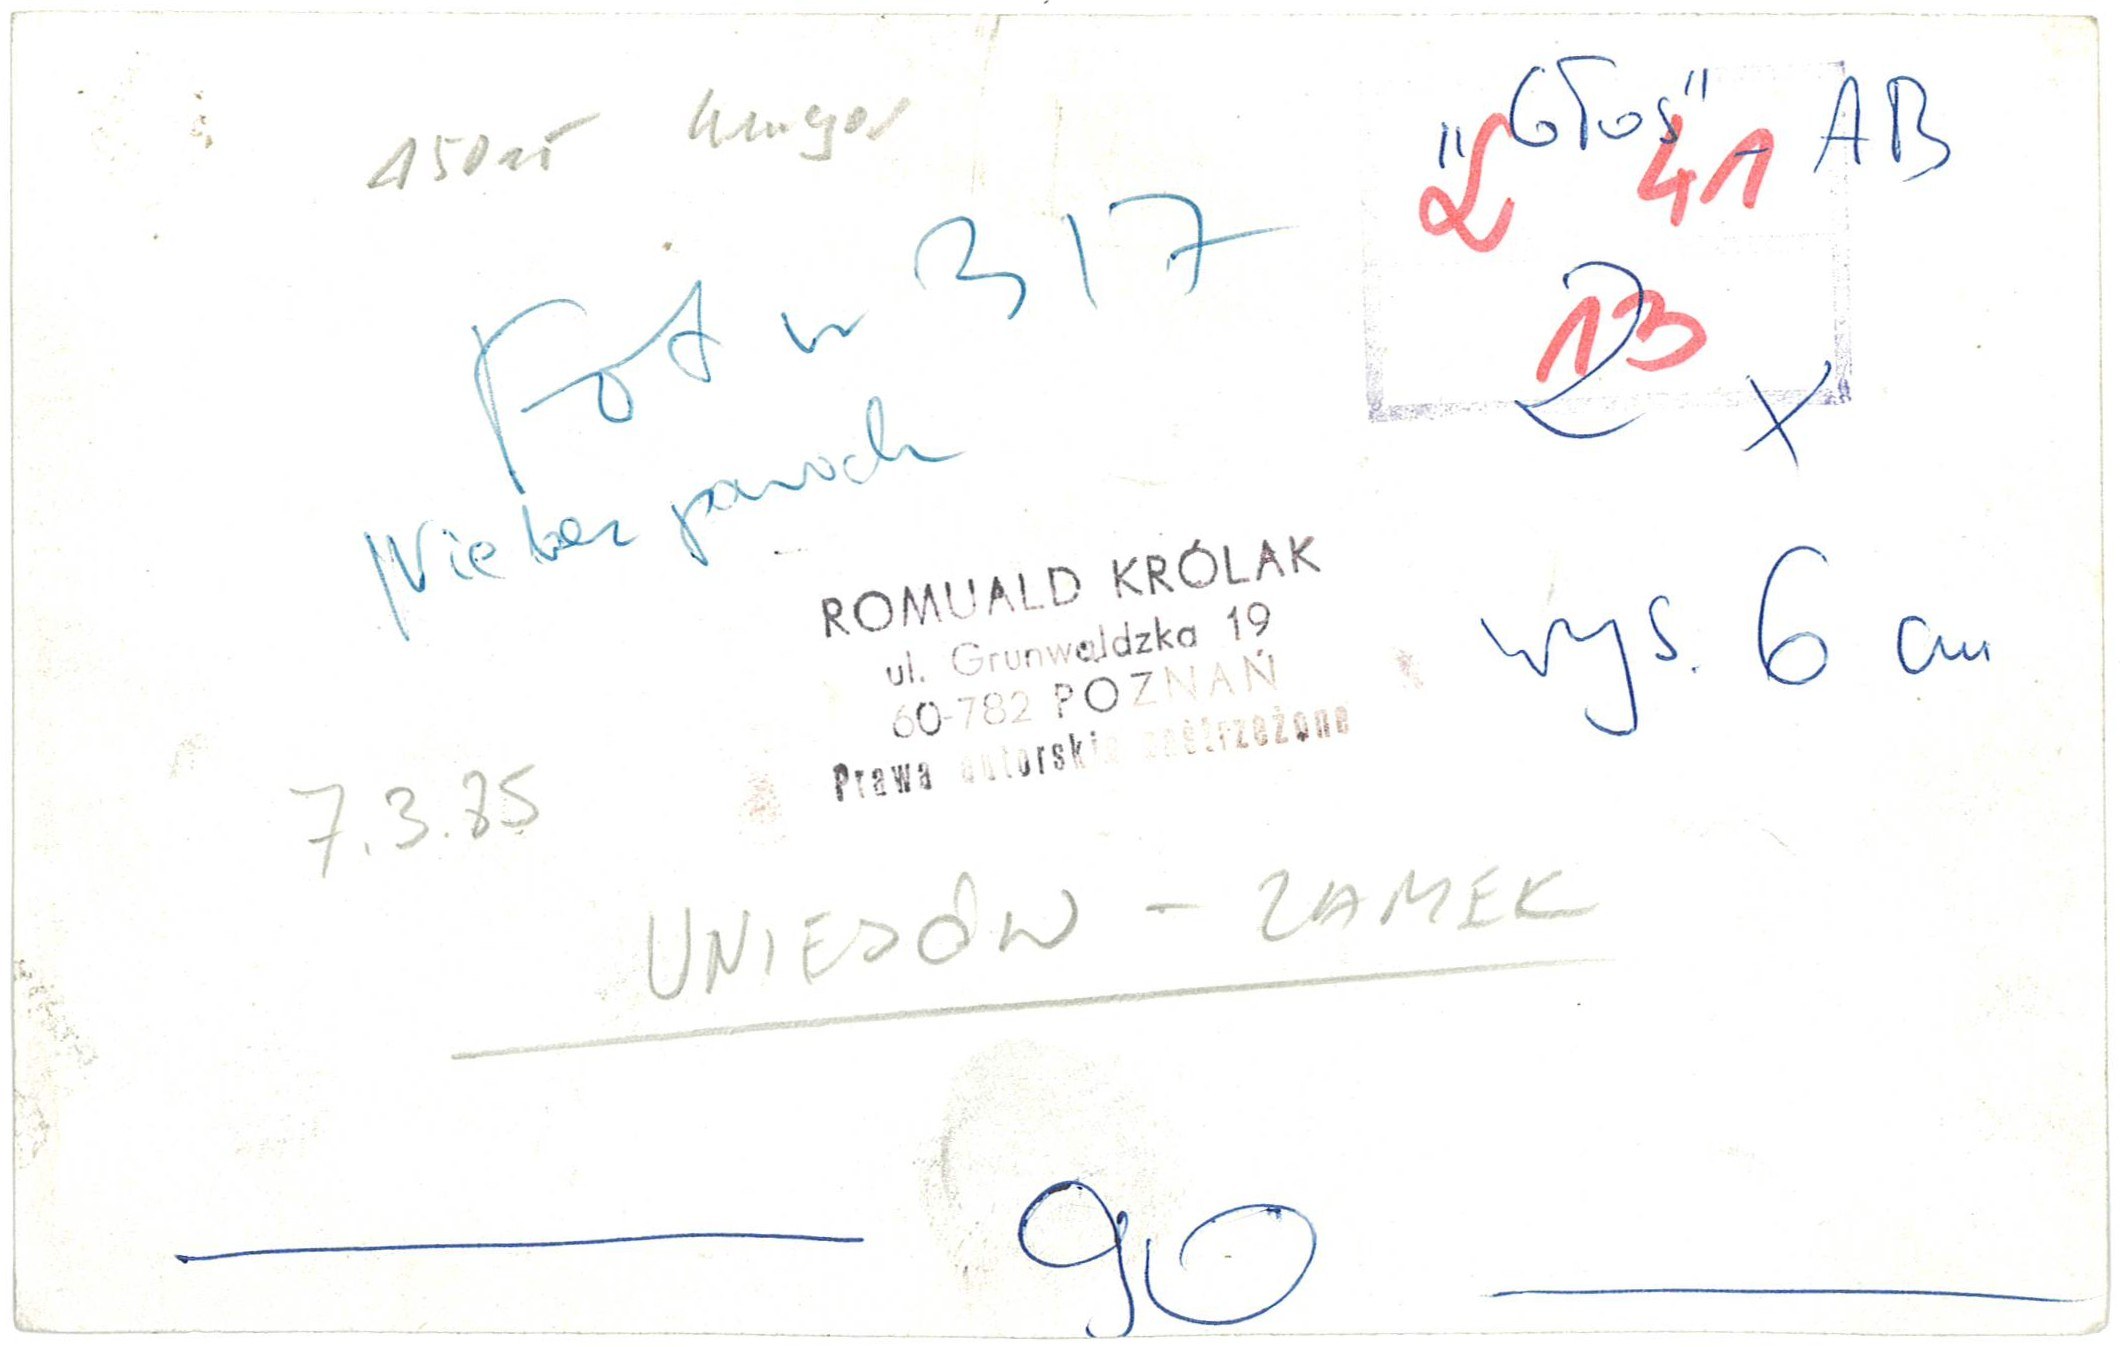 „Głos" - AB
Ł 41
13
2 x
Fot nr 317
Niebez
ROMUALD KRÓLAK
ul. Grunwaldzka 19
60-782 POZNAŃ
Prawa autorskie zastrzeżone
wys. 6 cm
7.3.85
UNIEJÓW - ZAMEK
90